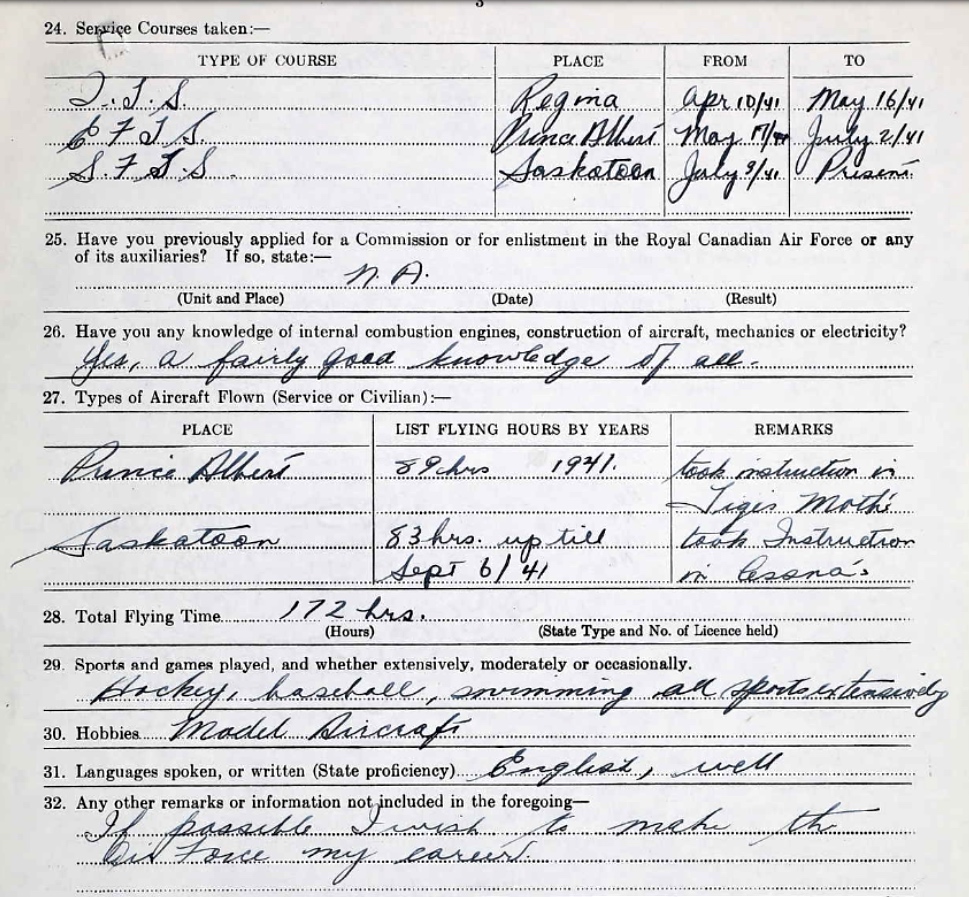 3
24. Service Courses taken:—
TYPE OF COURSE PLACE FROM TO
I. T. S. Regina Apr 10/41 May 16/41
E F T S. Prince Albert May 17/41 July 2/41
S. F T S. Saskatoon July 3/41 Present
25. Have you previously applied for a Commission or for enlistment in the Royal Canadian Air Force or any
of its auxiliaries? If so, state:—
N. A.
(Unit and Place) (Date) (Result)
26. Have you any knowledge of internal combustion engines, construction of aircraft, mechanics or electricity?
Yes, a fairly good knowledge of all.
27. Types of Aircraft Flown (Service or Civilian):—
PLACE LIST FLYING HOURS BY YEARS REMARKS
Prince Albert 89 hrs 1941. took instruction in
Tiger Moth's
Saskatoon 83 hrs. up till took Instruction
Sept 6/41 in Cessna's
28. Total Flying Time 172 hrs.
(Hours) (State Type and No. of Licence held)
29. Sports and games played, and whether extensively, moderately or occasionally.
Hockey, baseball, swimming all sports extensively
30. Hobbies Model Aircraft
31. Languages spoken, or written (State proficiency) English, well
32. Any other remarks or information not included in the foregoing—
If possible I wish to make the
Air Force my career.